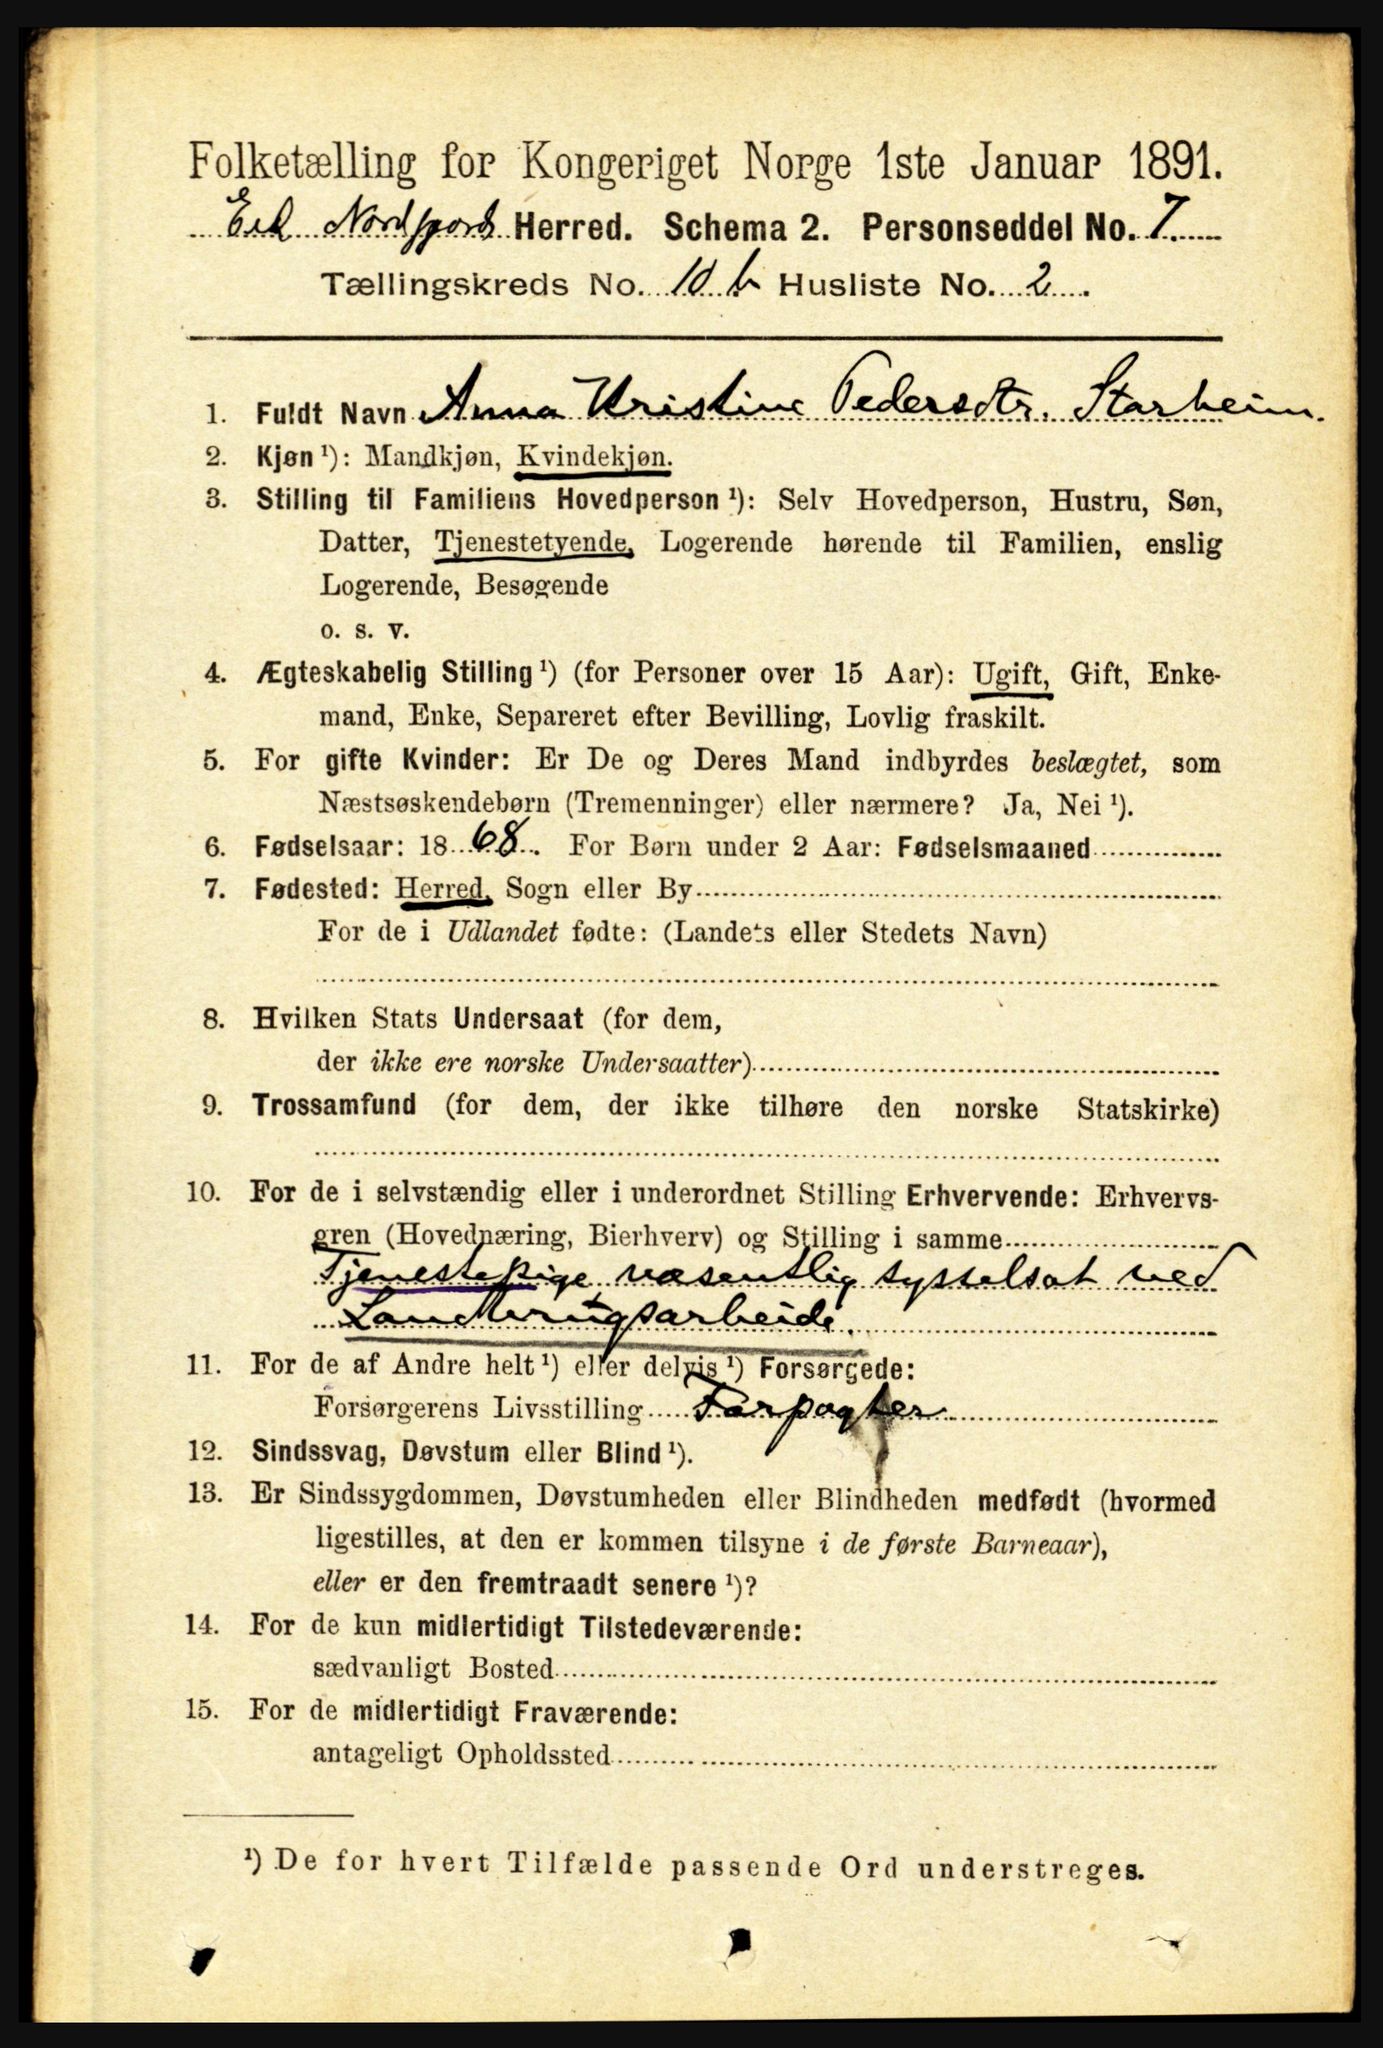 Folketælling for Kongeriget Norge 1ste Januar 1891.
Eid Nordfjord Herred. Schema 2. Personseddel No. 7.
Tællingskreds No. 10 b Husliste No. 2.
1. Fuldt Navn Anna Kristine Pedersdtr. Starheim.
2. Kjøn ¹): Mandkjøn, Kvindekjøn.
3. Stilling til Familiens Hovedperson ¹): Selv Hovedperson, Hustru, Søn,
Datter, Tjenestetyende, Logerende hørende til Familien, enslig
Logerende, Besøgende
o. s. v.
4. Ægteskabelig Stilling ¹) (for Personer over 15 Aar): Ugift, Gift, Enke-
mand, Enke, Separeret efter Bevilling, Lovlig fraskilt.
5. For gifte Kvinder: Er De og Deres Mand indbyrdes beslægtet, som
Næstsøskendebørn (Tremenninger) eller nærmere? Ja, Nei ¹).
6. Fødselsaar: 1868. For Børn under 2 Aar: Fødselsmaaned
7. Fødested: Herred, Sogn eller By
For de i Udlandet fødte: (Landets eller Stedets Navn)
8. Hvilken Stats Undersaat (for dem,
der ikke ere norske Undersaatter)
9. Trossamfund (for dem, der ikke tilhøre den norske Statskirke)
10. For de i selvstændig eller i underordnet Stilling Erhvervende: Erhvervs-
gren (Hovednæring, Bierhverv) og Stilling i samme
Tjenestepige væsentlig sysselsat ved
Landbrugsarbeide.
11. For de af Andre helt ¹) eller delvis ¹) Forsørgede:
Forsørgerens Livsstilling Forpagter
12. Sindssvag, Døvstum eller Blind ¹).
13. Er Sindssygdommen, Døvstumheden eller Blindheden medfødt (hvormed
ligestilles, at den er kommen tilsyne i de første Barneaar),
eller er den fremtraadt senere ¹)?
14. For de kun midlertidigt Tilstedeværende:
sædvanligt Bosted
15. For de midlertidigt Fraværende:
antageligt Opholdssted
¹) De for hvert Tilfælde passende Ord understreges.